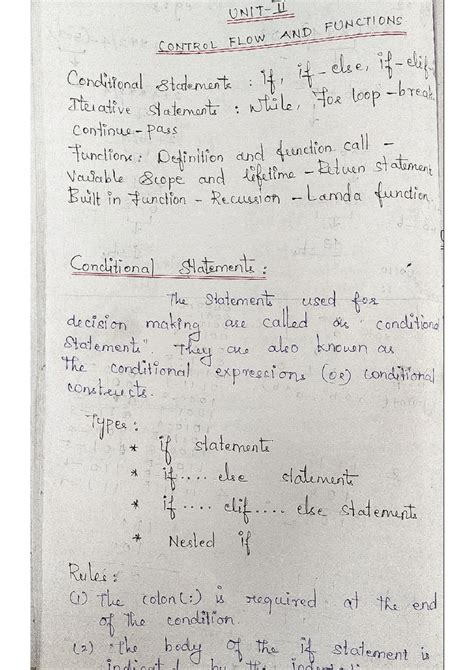 UNIT-II
CONTROL FLOW AND FUNCTIONS
Conditional Statements : if, if-else, if-elif-
Iterative Statements : While, For loop-break
continue-pass
Functions: Definition and function call -
Variable Scope and lifetime - Return statement
Built in Function - Recussion - Lamda function.
Conditional Statements :
The Statements used for
decision making are called as conditional
Statements" They are also known as
The conditional exprescions (or) conditional
constructs.
Types :
* if statements
* if.... else statements
* if.... elif.... else statements
* Nested if
Rules :
(1) The colon(:) is required at the end
of the condition.
(2) the body of the if statement is
by the